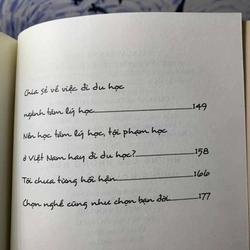 Chia sẻ về việc đi du học
ngành tâm lý học.....149
Nên học tâm lý học, tội phạm học
ở Việt Nam hay đi du học?.....158
Tôi chưa từng hối hận.....166
Chọn nghề cũng như chọn bạn đời.....177